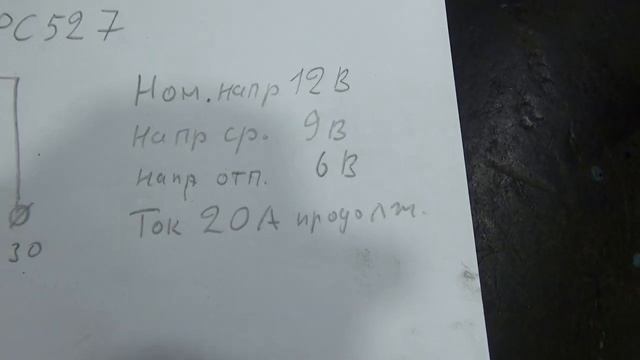 РС527
Ном.напр 12В
напр ср. 9В
напр отп. 6В
Ток 20А продолж.
30